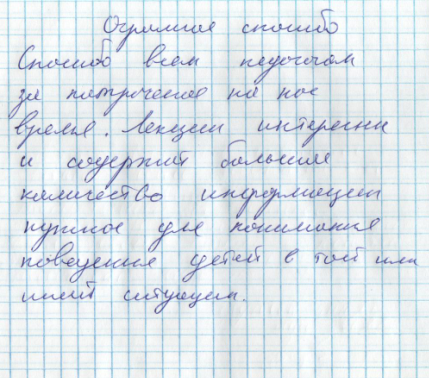 Огромное спасибо
Спасибо всем педагогам
за потраченое на нас
время. Лекции интересны
и содержит большие
количество информации
нужное для понимания
поведения детей в той или
иной ситуации.